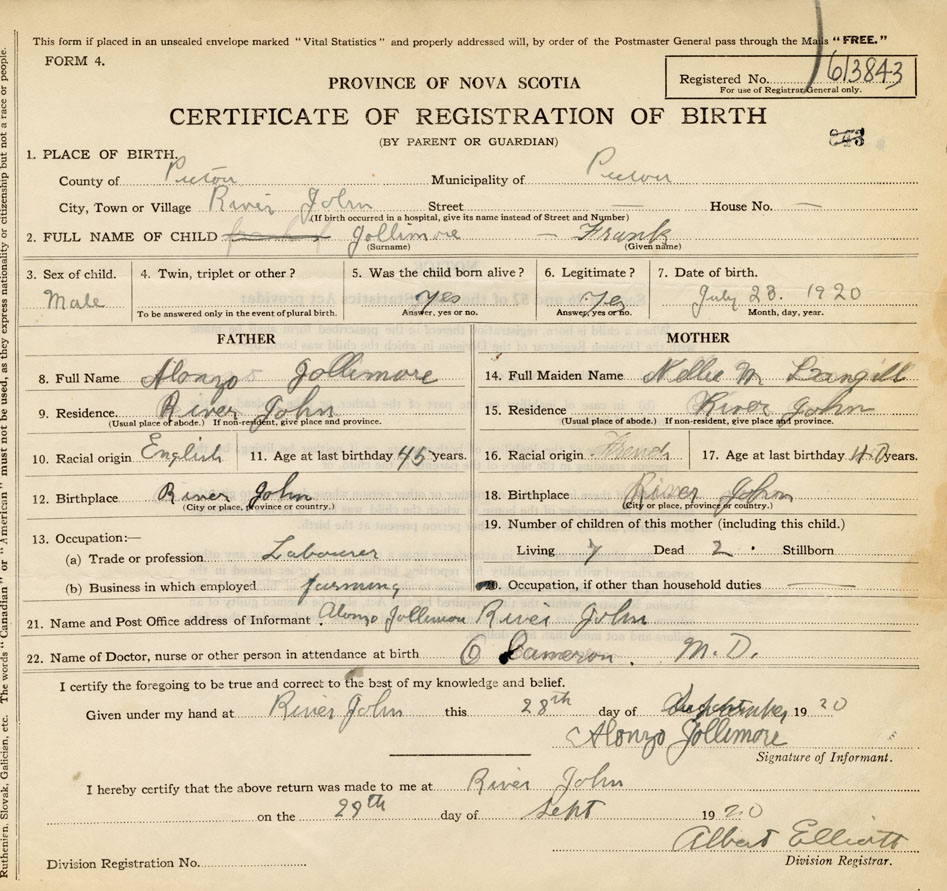 This form if placed in an unsealed envelope marked "Vital Statistics" and properly addressed will, by order of the Postmaster General pass through the Mails "FREE."
FORM 4.
PROVINCE OF NOVA SCOTIA
Registered No. 613843
For use of Registrar General only.
CERTIFICATE OF REGISTRATION OF BIRTH
(BY PARENT OR GUARDIAN)
843
1. PLACE OF BIRTH.
County of Pictou Municipality of Pictou
City, Town or Village River John Street — House No. —
(If birth occurred in a hospital, give its name instead of Street and Number)
2. FULL NAME OF CHILD Jollimore — Frank
(Surname) (Given name)
3. Sex of child. 4. Twin, triplet or other? 5. Was the child born alive? 6. Legitimate? 7. Date of birth.
Male Yes Yes July 23. 1920
To be answered only in the event of plural birth. Answer, yes or no. Answer, yes or no. Month, day, year.
FATHER MOTHER
8. Full Name Alonzo Jollimore 14. Full Maiden Name Nellie M Langill
9. Residence River John 15. Residence River John
(Usual place of abode.) If non-resident, give place and province. (Usual place of abode.) If non-resident, give place and province.
10. Racial origin English 11. Age at last birthday 45 years. 16. Racial origin French 17. Age at last birthday 40 years.
12. Birthplace River John 18. Birthplace River John
(City or place, province or country.) (City or place, province or country.)
13. Occupation:— 19. Number of children of this mother (including this child.)
(a) Trade or profession Labourer Living 7 Dead 2 Stillborn
(b) Business in which employed farming 20. Occupation, if other than household duties —
21. Name and Post Office address of Informant. Alonzo Jollimore River John
22. Name of Doctor, nurse or other person in attendance at birth Cameron. M.D.
I certify the foregoing to be true and correct to the best of my knowledge and belief.
Given under my hand at River John this 28th day of September 1920
Alonzo Jollimore
Signature of Informant.
I hereby certify that the above return was made to me at River John
on the 29th day of Sept 1920
Albert Elliott
Division Registration No. Division Registrar.
Ruthenien, Slovak, Galician, etc. The words "Canadian" or "American" must not be used, as they express nationality or citizenship but not a race or people.